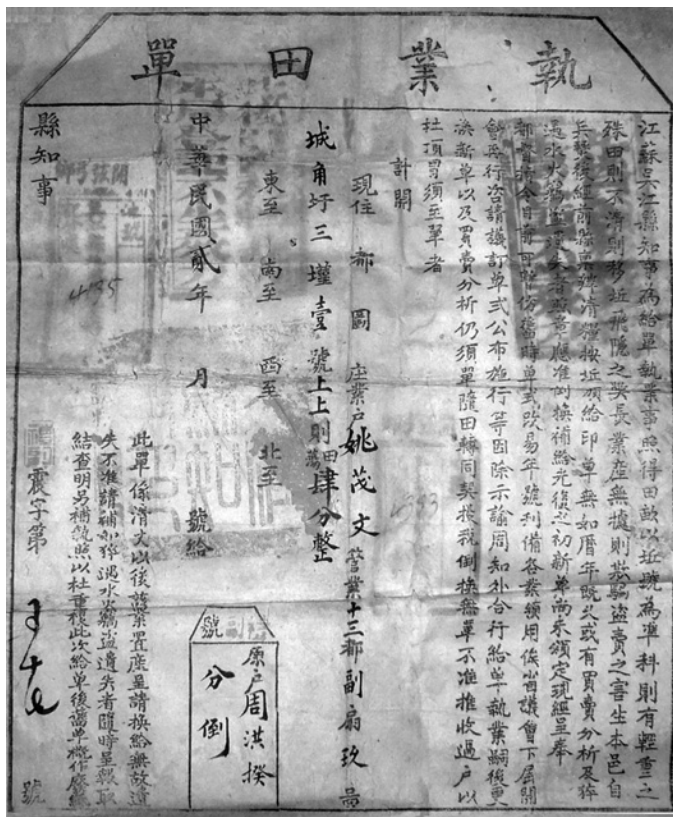 執業田單
江蘇吳江縣知事為給單執業事照得田畝以坵號為準科則有輕重之
殊田則不清則移坵飛隱之獘長業產無據則欺騙盜賣之害生本邑自
兵燹後經前縣稟辦清糧按坵頒給印單無如曆年既久或有買賣分析及猝
遇水火竊盜遺失者應准倒換補給光復之初新單尚未頒定現經呈奉
都督指令目前可暫仿舊時單式改易年號刊備各業領用俟省議會下屆開
會再行咨請議訂單式公布施行等因除示諭周知外合行給單執業嗣後更
換新單以及買賣分析仍須單隨田轉同契投稅倒換無單不准推收過戶以
杜頂冒須至單者
計開
現住 都 圖 座業戶姚茂文管業十三都副扇玖啚
城角圩三墐壹號上上則田蕩肆分整
東至 南至 西至 北至
中華民國貳年 月 號給
原戶周洪揆
分倒
號
縣知事
此單係清丈以後執業置產呈請換給無故遺
失不准請補如猝遇水火竊盜遺失者隨時呈報取
結查明另補執照以杜重複此次給單後舊單概作廢紙
震字第 號
4395
4393